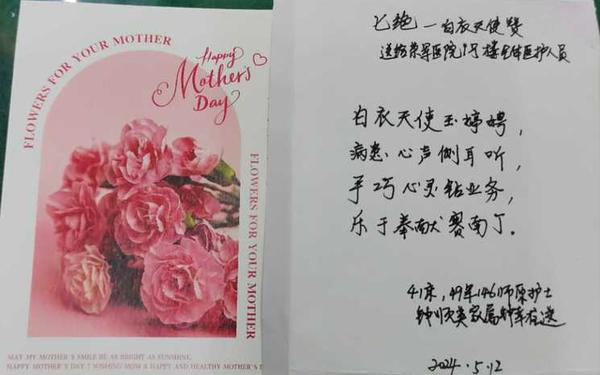 FLOWERS FOR YOUR MOTHER
Happy
Mother's
Day
FLOWERS FOR YOUR MOTHER
MAY MY MOTHER'S SMILE BE AS BRIGHT AS SUNSHINE.
HAPPY MOTHER'S DAY! WISHING MOM A HAPPY AND HEALTHY MOTHER'S
七绝一白衣天使赞
送给荣军医院1号楼全体医护人员
白衣天使玉婷娉,
病患心声侧耳听,
手巧心灵钻业务,
乐于奉献赛南丁.
41床,49年146师原护士
家属
2024.5.12